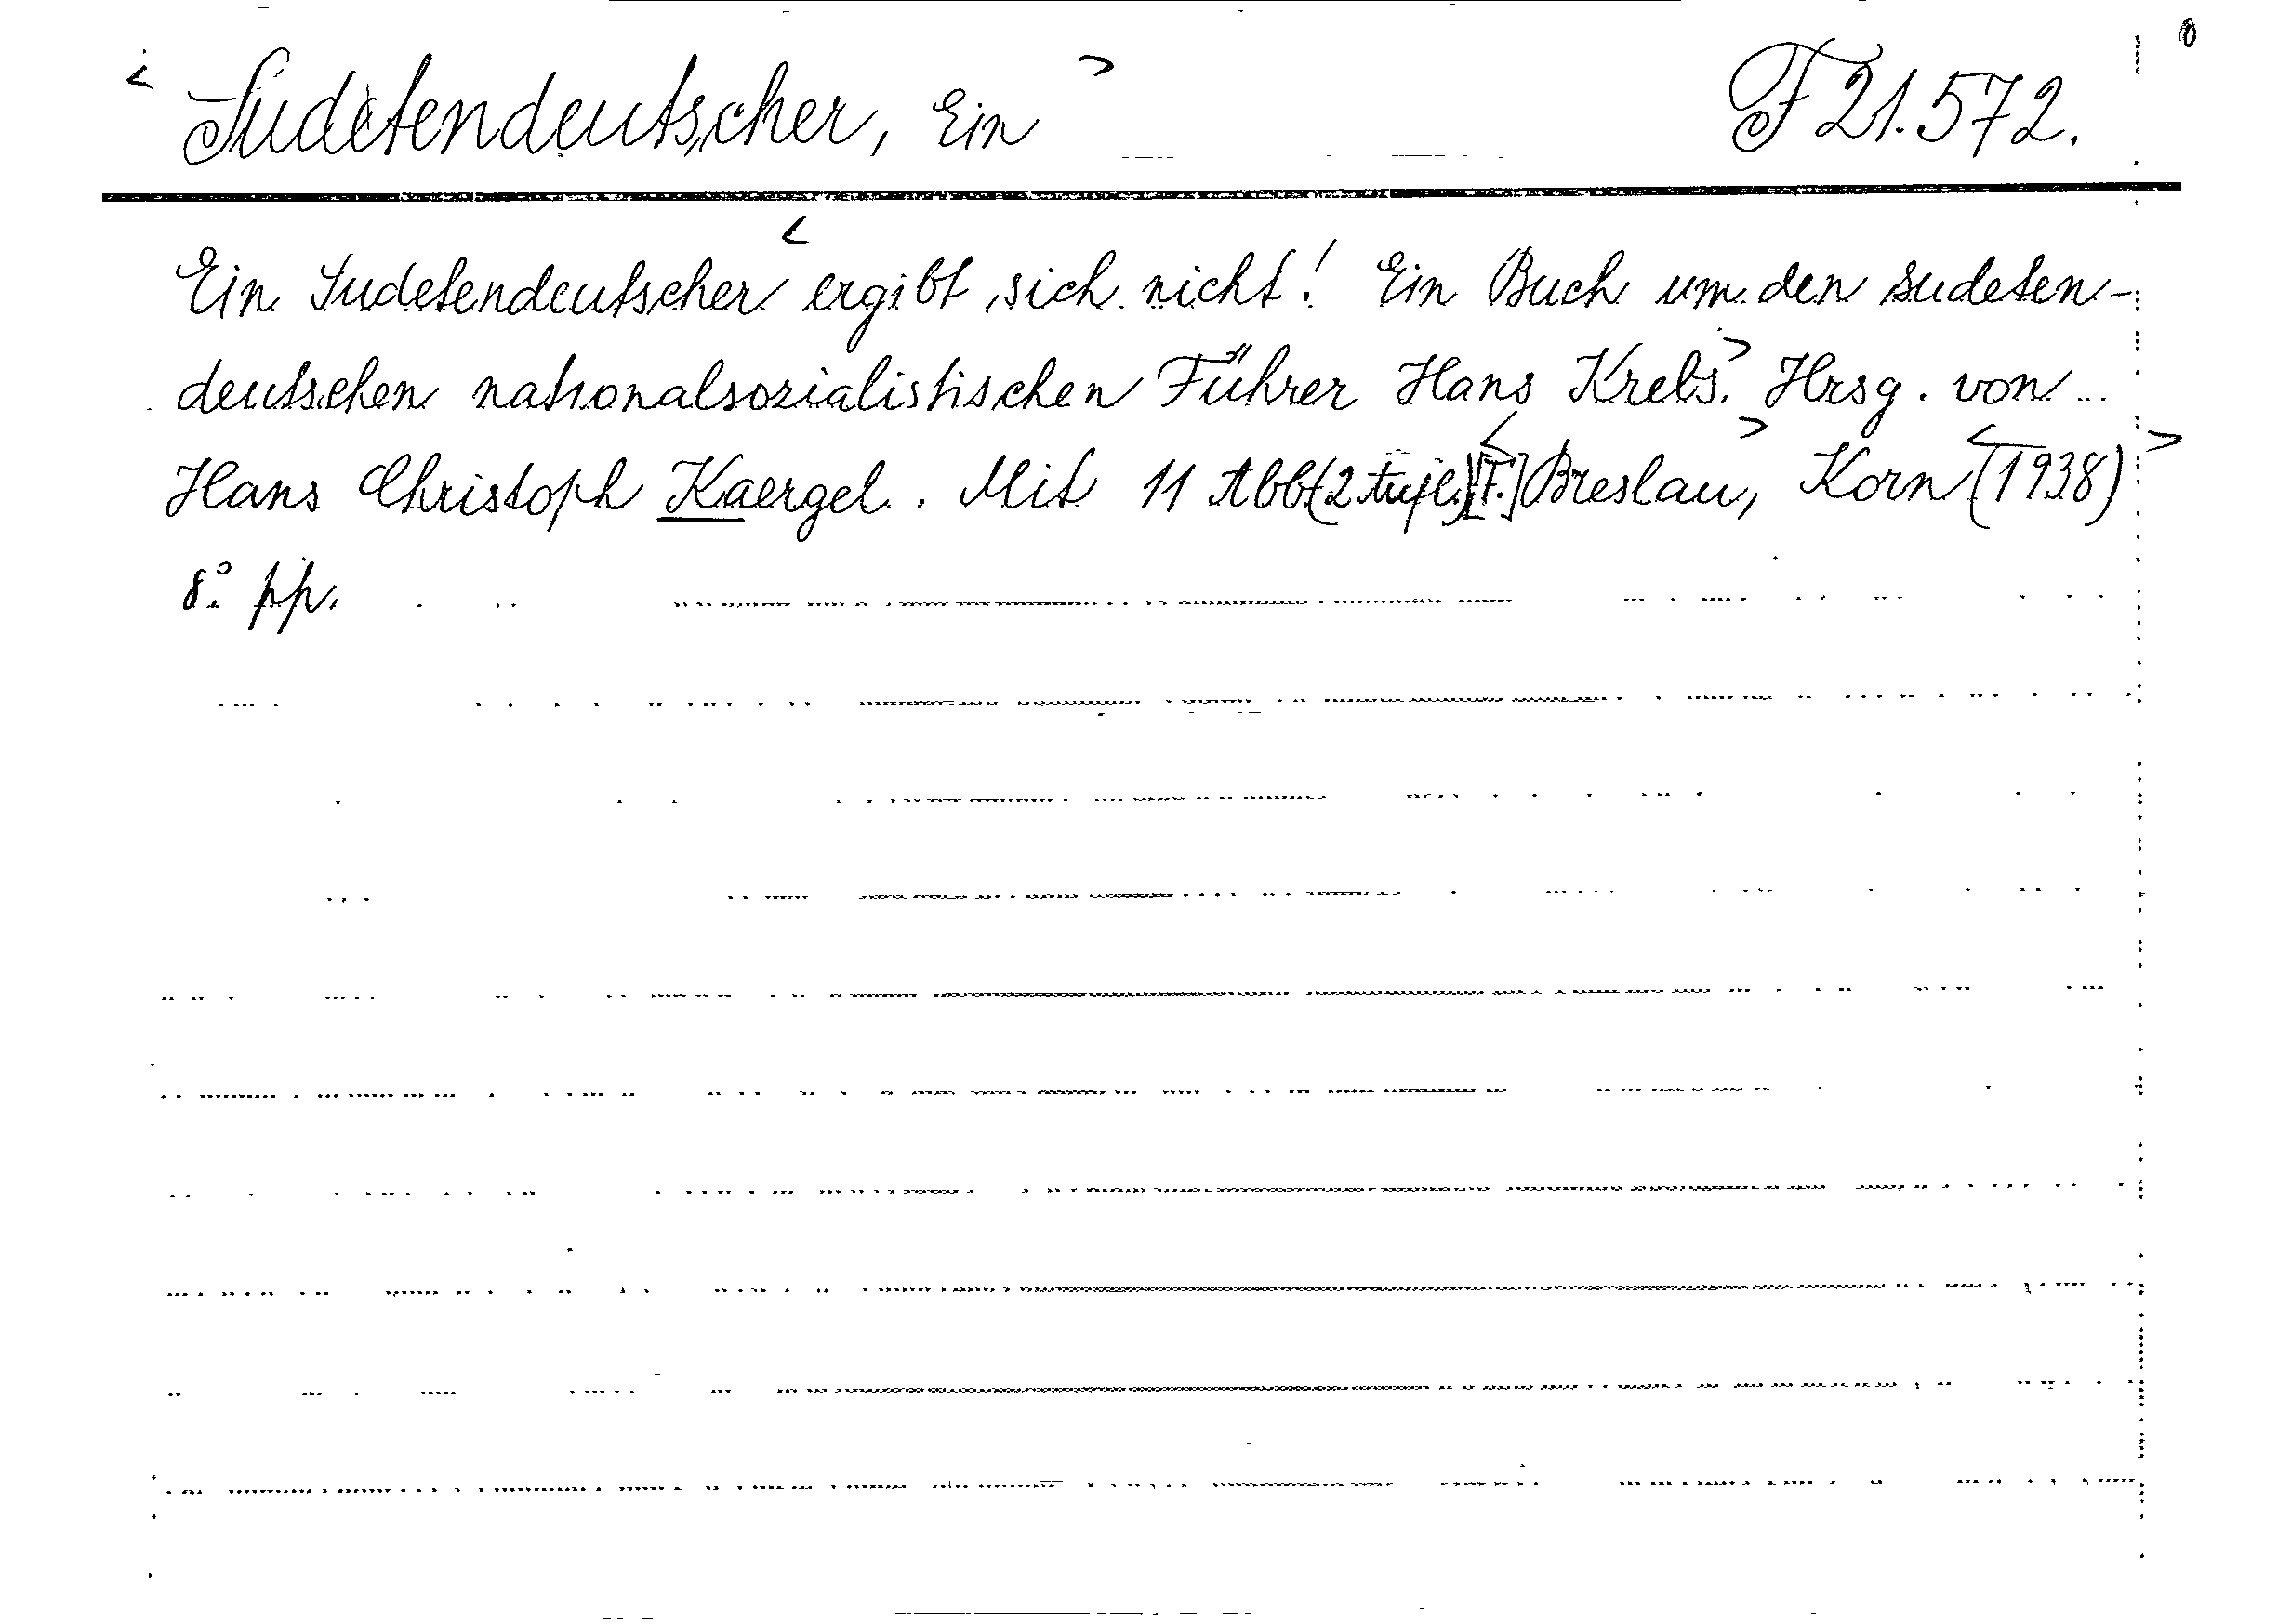 < Sudetendeutscher, Ein > F 21.572.
Ein Sudetendeutscher < ergibt sich nicht! Ein Buch um den sudeten-
deutschen nationalsozialistischen Führer Hans Krebs.> Hrsg. von ...
Hans Christoph Kaergel. Mit 11 Abb. <[T.]> Breslau, Korn <(1938)>
8° pp.